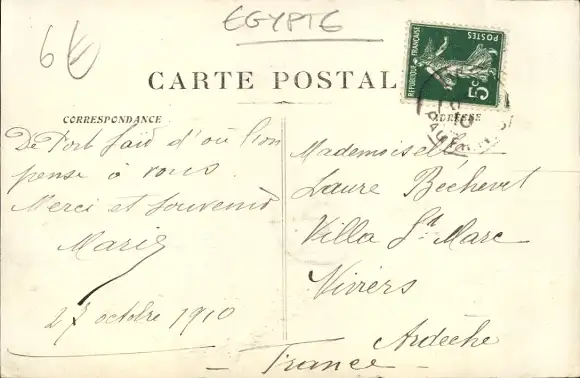 EGYPTE
6 €
CARTE POSTALE
REPUBLIQUE FRANÇAISE
POSTES
5c
CORRESPONDANCE
ADRESSE
De Port Saïd d'où l'on
pense à vous
Merci et souvenirs
Marie
27 octobre 1910
Mademoiselle
Laure Béchevet
Villa St Marc
Viviers
Ardèche
- France -